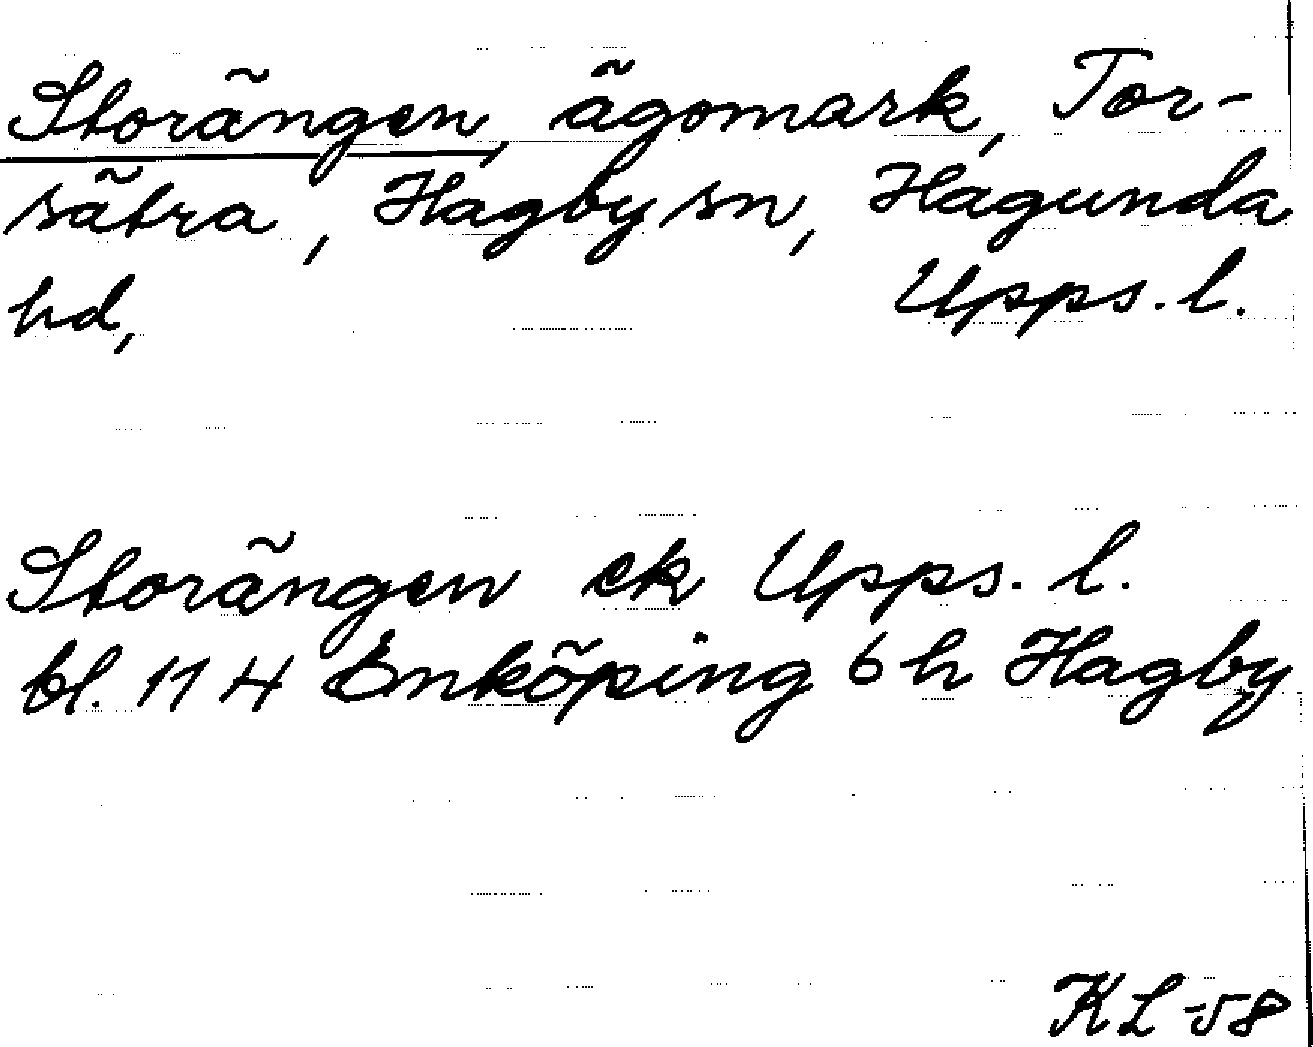 Storängen, ägomark, Tor-
sätra, Hagby sn, Hagunda
hd, Upps. l.
Storängen ek Upps. l.
bl. 114 Enköping 6 h Hagby
KL -58